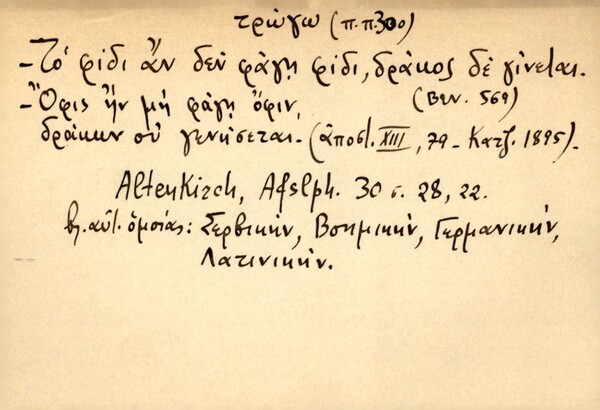 τρώγω (π.π. 300)
- Τό φίδι ἂν δεν φάγῃ φίδι, δράκος δέ γίνεται.
- Ὄφις ἢν μή φάγῃ ὄφιν, (Βεν. 569)
δράκων οὐ γενήσεται. (ἀποστ. XIII, 79 - Κατζ. 1895).
Altenkirch, Afslph. 30 σ. 28, 22.
βλ. αὐτ. ὁμοίας: Σερβικήν, Βοημικήν, Γερμανικήν,
Λατινικήν.